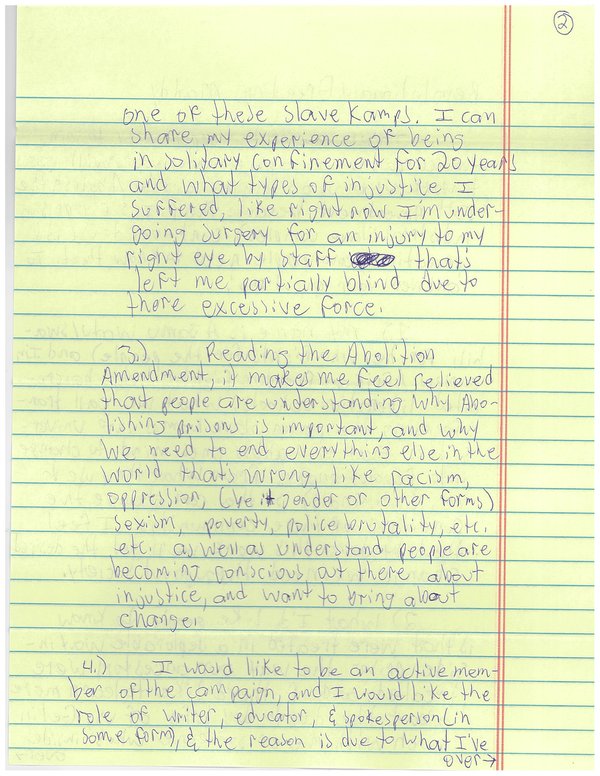 2
one of these slave Kamps. I can
share my experience of being
in solitary confinement for 20 years
and what types of injustice I
suffered, like right now I'm under-
going surgery for an injury to my
right eye by staff that's
left me partially blind due to
there excessive force.
3.) Reading the Abolition
Amendment, it makes me feel relieved
that people are understanding why Abo-
lishing prisons is important, and why
we need to end everything else in the
world that's wrong, like racism,
oppression, (be it gender or other forms)
sexism, poverty, police brutality, etc.
etc. as well as understand people are
becoming conscious out there about
injustice, and want to bring about
change.
4.) I would like to be an active mem-
ber of the campaign, and I would like the
role of writer, educator, & spokesperson (in
some form), & the reason is due to what I've
over→